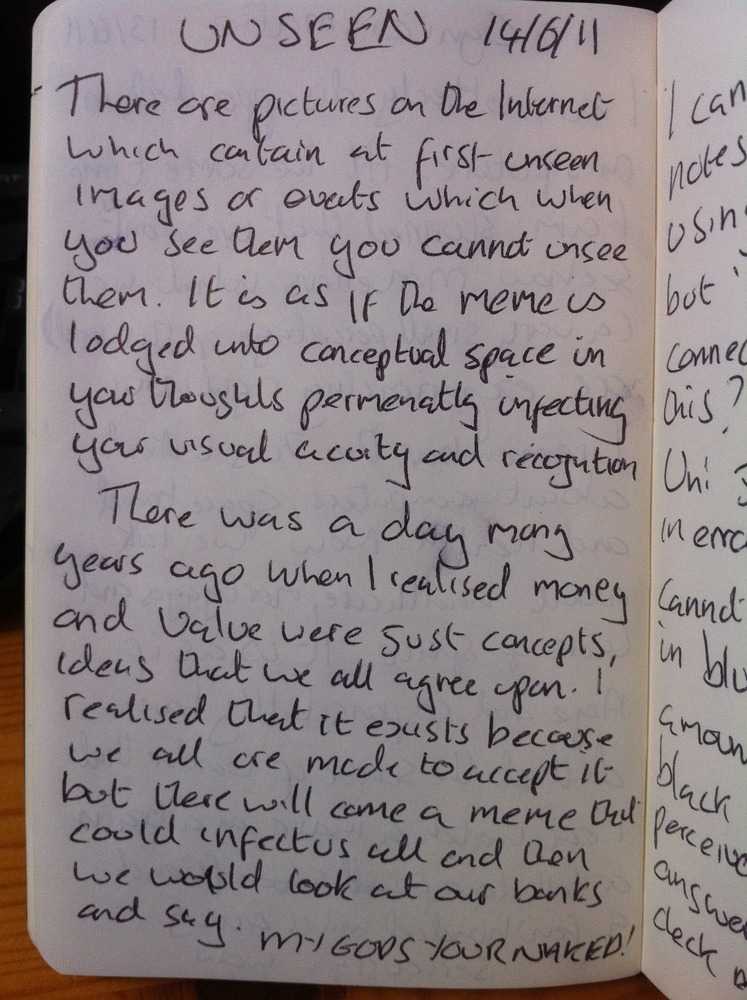 UNSEEN 14/6/11
There are pictures on the Internet
which contain at first unseen
images or events which when
you see them you cannot unsee
them. It is as if the meme is
lodged into conceptual space in
your thoughts permenatly infecting
your visual acuity and recognition
There was a day many
years ago when I realised money
and value were just concepts,
ideas that we all agree upon. I
realised that it exists because
we all are made to accept it
but there will come a meme that
could infect us all and then
we would look at our banks
and say. MY GODS YOUR NAKED!
I can
notes
using
but
connec
this?
Uni
in erro
cannot
in blu
amoun
black
perceive
answe
check